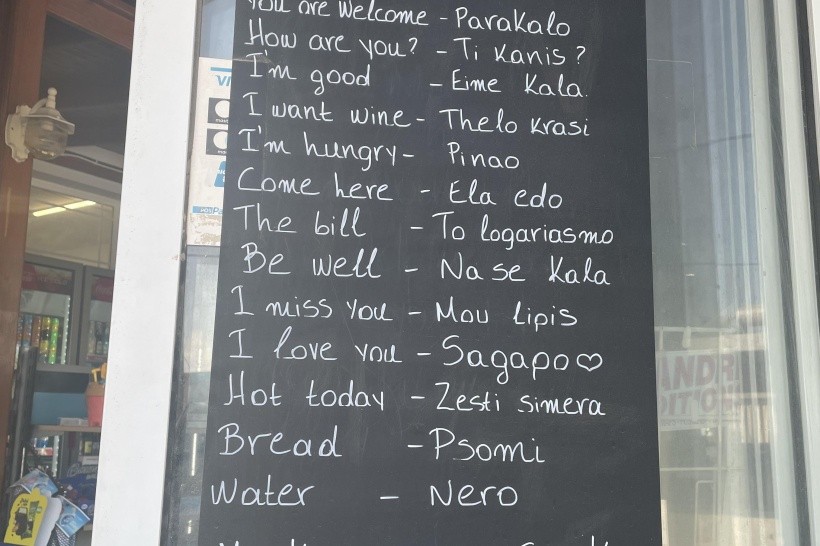 You are Welcome - Parakalo
How are you? - Ti Kanis?
I'm good - Eime Kala.
I want wine - Thelo krasi
I'm hungry - Pinao
Come here - Ela edo
The bill - To logariasmo
Be well - Na se Kala
I miss you - Mou lipis
I love you - Sagapo♡
Hot today - Zesti simera
Bread - Psomi
Water - Nero